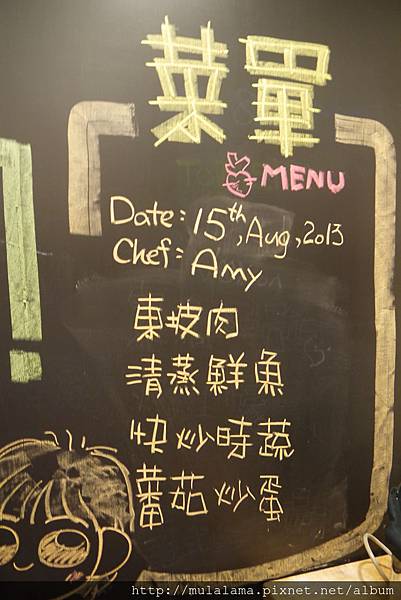 菜單
MENU
Date: 15th, Aug, 2013
Chef: Amy
東坡肉
清蒸鮮魚
快炒時蔬
蕃茄炒蛋
http://mulalama.pixnet.net/album